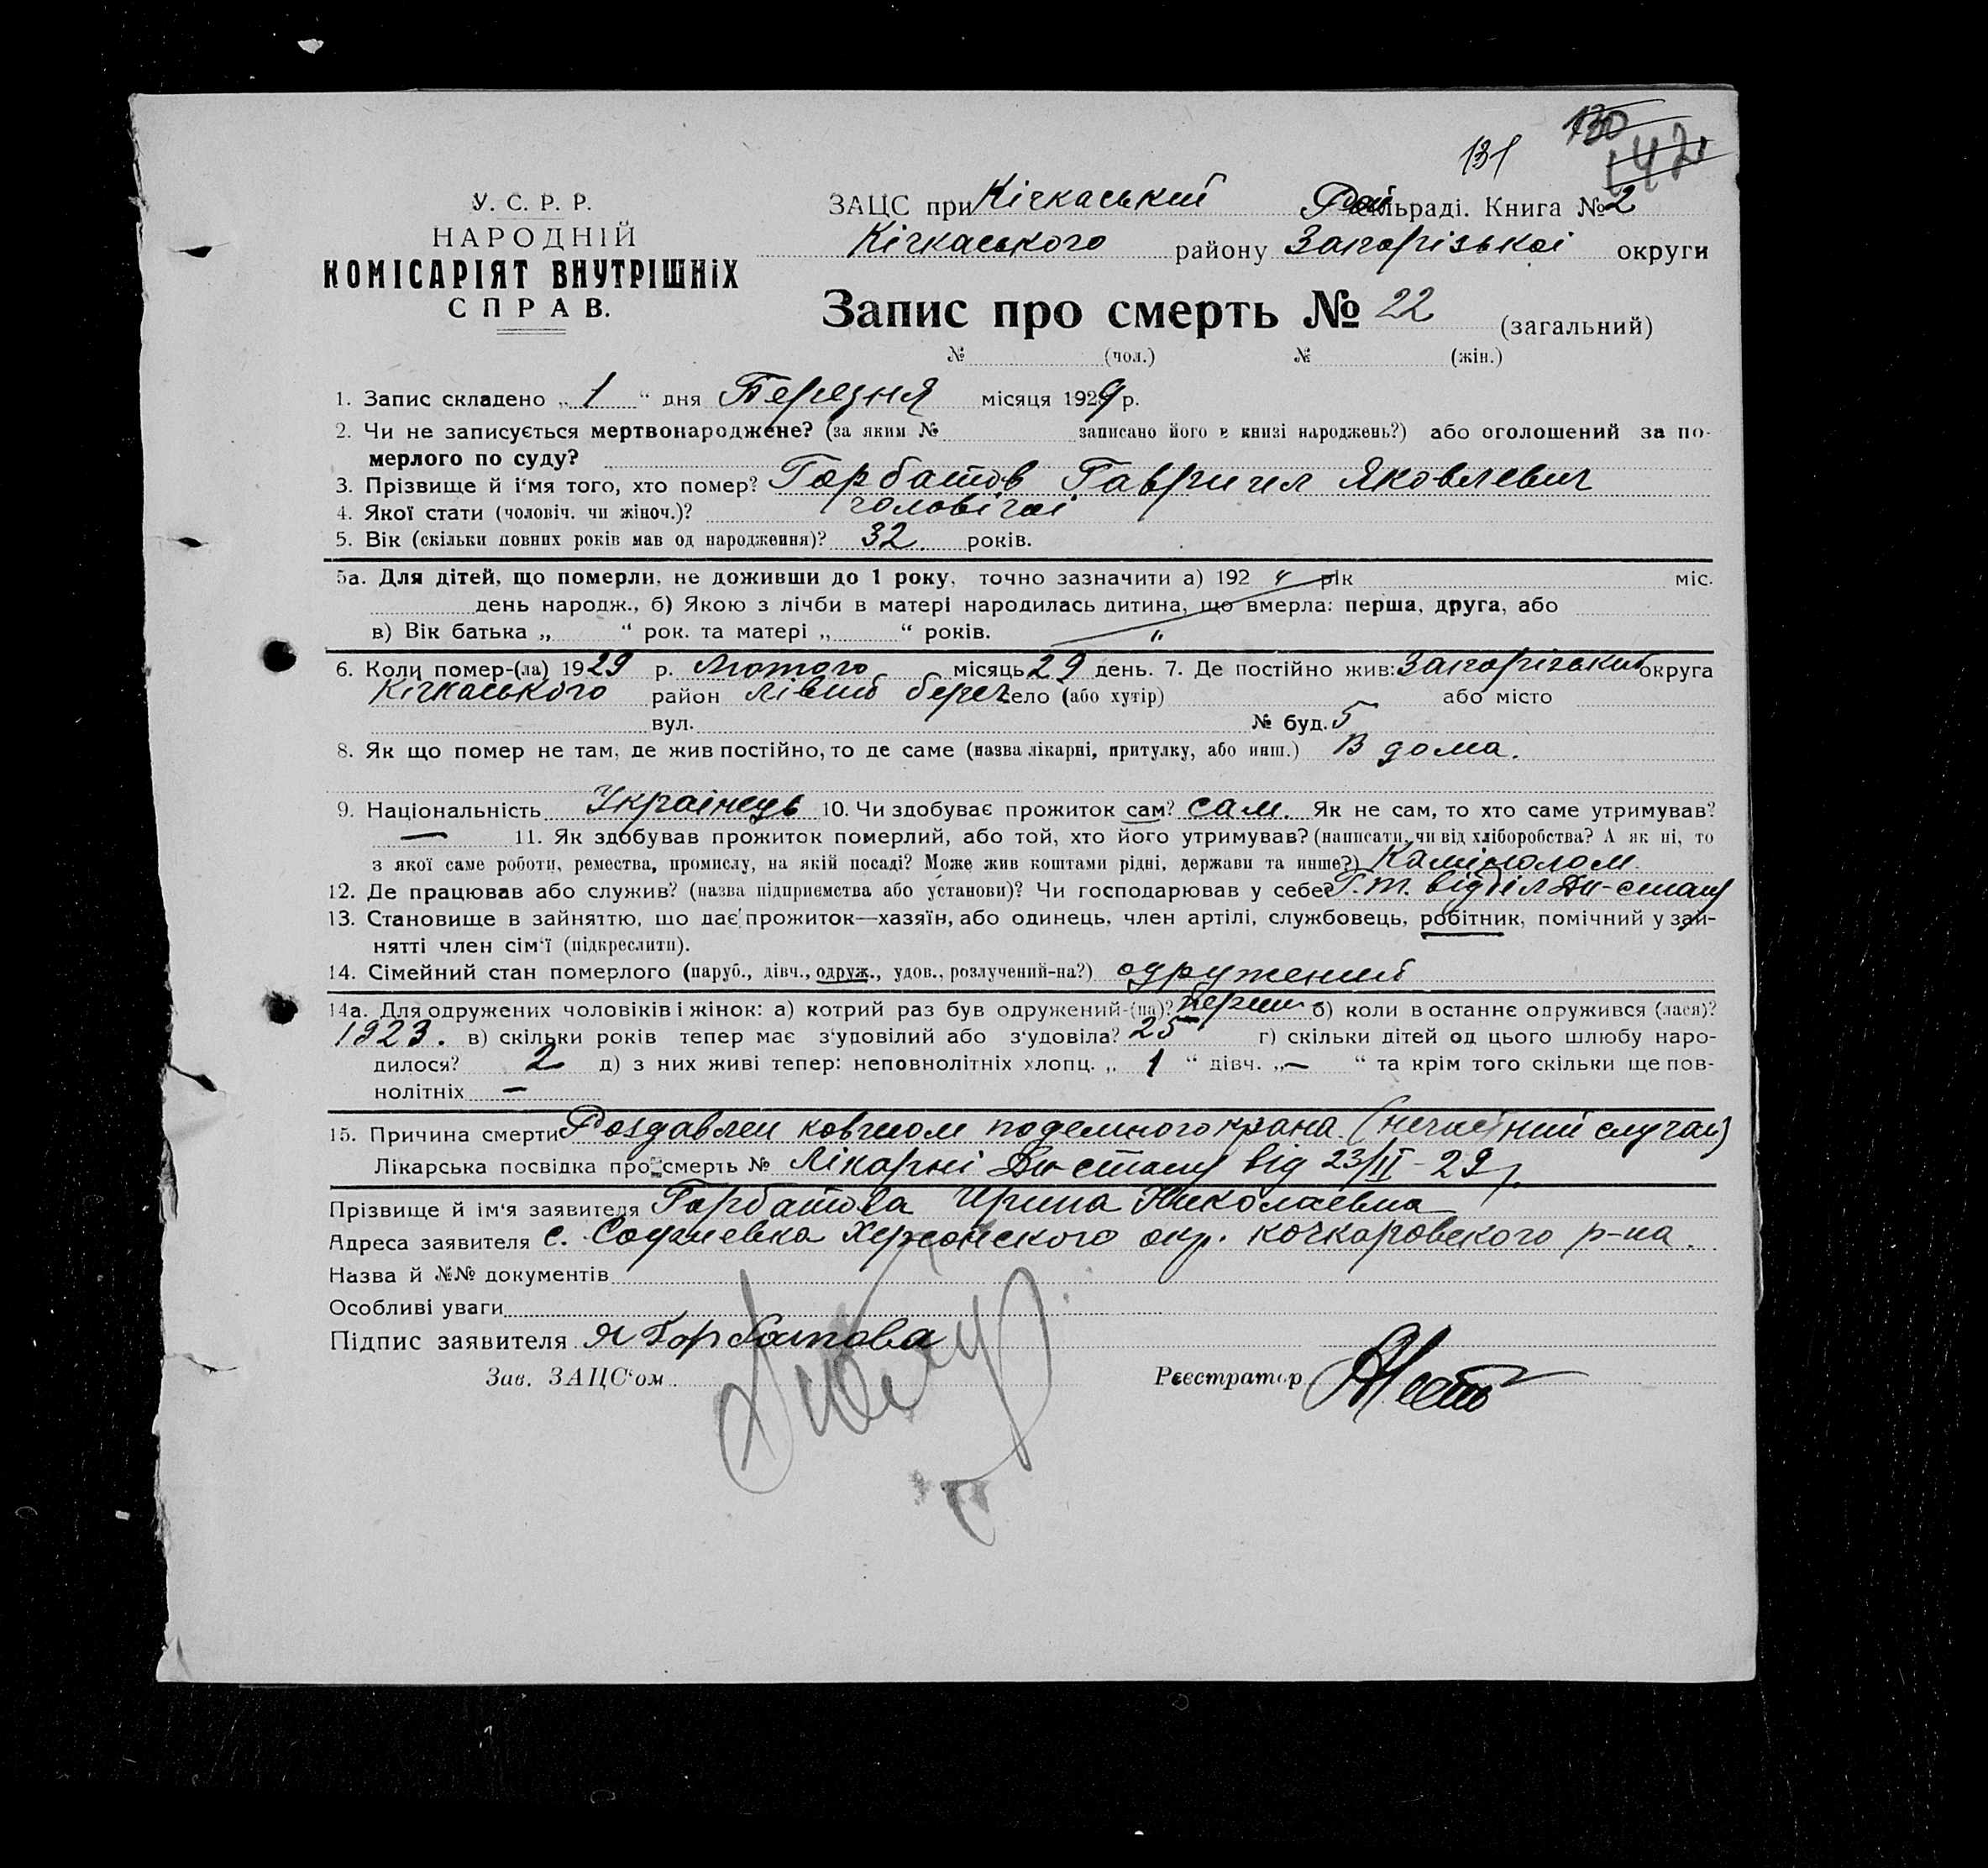 130
142
131
У. С. Р. Р.
НАРОДНІЙ
КОМІСАРІЯТ ВНУТРІШНІХ
СПРАВ.
ЗАЦС при Кічкаський Рай сільраді. Книга № 2
Кічкаського району Запорізькоі округи
Запис про смерть № 22 (загальний)
№ (чол.) № (жін.)
1. Запис складено „ 1 “ дня Березня місяця 1929 р.
2. Чи не записується мертвонароджене? (за яким № записано його в книзі народжень?) або оголошений за по-
мерлого по суду?
3. Прізвище й і'мя того, хто помер? Горбатов Гавриил Яковлевич
4. Якої стати (чоловіч. чи жіноч.)? чоловічоі
5. Вік (скільки повних років мав од народження)? 32 років.
5а. Для дітей, що померли, не доживши до 1 року, точно зазначити а) 192 рік міс.
день народж., б) Якою з лічби в матері народилась дитина, що вмерла: перша, друга, або
в) Вік батька „ “ рок. та матері „ “ років.
6. Коли помер-(ла) 1929 р. Лютого місяць 29 день. 7. Де постійно жив: Запорізький округа
Кічкаського район Лівий берег село (або хутір) або місто
вул. № буд. 5
8. Як що помер не там, де жив постійно, то де саме (назва лікарні, притулку, або инш.) В дома.
9. Національність Украінець 10. Чи здобуває прожиток сам? сам. Як не сам, то хто саме утримував?
— 11. Як здобував прожиток померлий, або той, хто його утримував? (написати, чи від хліборобства? А як ні, то
з якої саме роботи, ремества, промислу, на якій посаді? Може жив коштами рідні, держави та инше?)
12. Де працював або служив? (назва підприємства або установи)? Чи господарював у себе? Г.т. відділ Дн-стану
13. Становище в зайняттю, що дає прожиток—хазяїн, або одинець, член артілі, службовець, робітник, помічний у зай-
нятті член сім'ї (підкреслити).
14. Сімейний стан померлого (паруб., дівч., одруж., удов., розлучений-на?) одружений
14а. Для одружених чоловіків і жінок: а) котрий раз був одружений-(на)? перши б) коли в останнє одружився (лася)?
1923. в) скільки років тепер має з'удовілий або з'удовіла? 25 г) скільки дітей од цього шлюбу наро-
дилося? 2 д) з них живі тепер: неповнолітніх хлопц. „ 1 “ дівч. „ — “ та крім того скільки ще пов-
нолітніх —
15. Причина смерти Роздавлен ковшом подемного крана (нечастний случай)
Лікарська посвідка про смерть № Лікарні Дн-стану від 23/II-29 р.
Прізвище й ім'я заявителя Горбатова Ирина Николаевна
Адреса заявителя с. Софиевка Херсонского окр. кочкаровского р-на.
Назва й №№ документів
Особливі уваги
Підпис заявителя Горбатова
Зав. ЗАЦС'ом Реєстратор